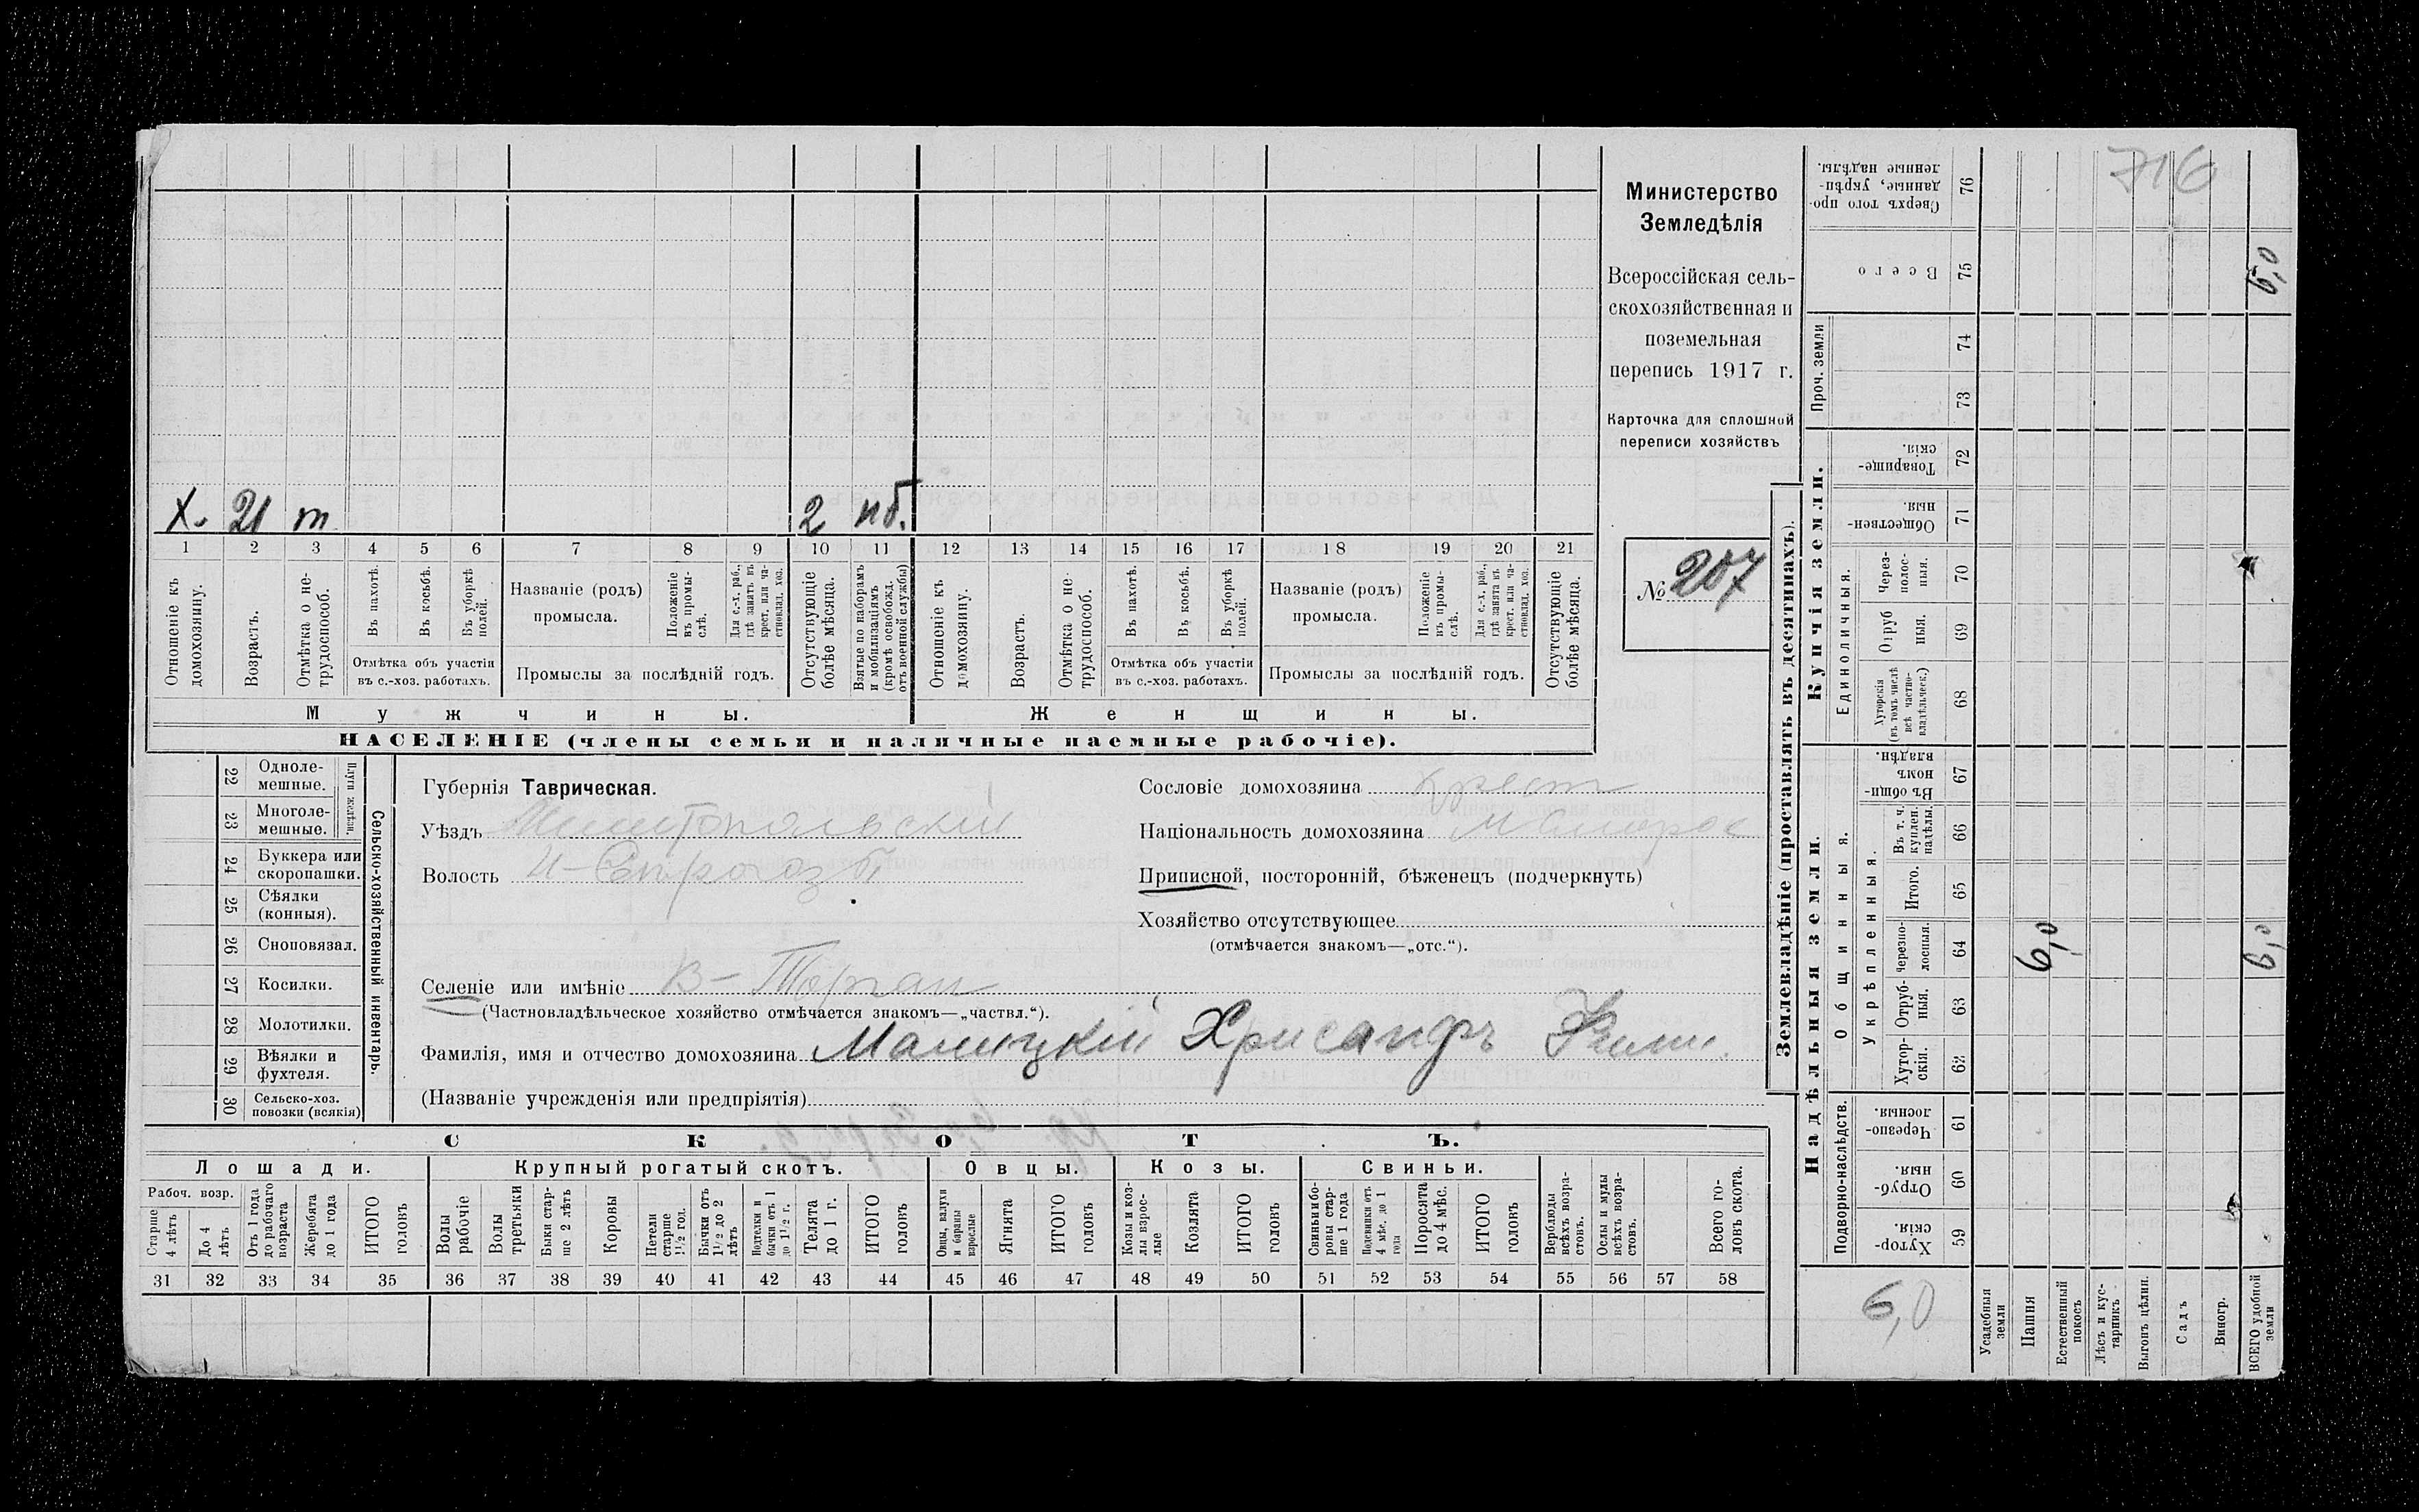 Х. 21 т 2 нб.
1 2 3 4 5 6 7 8 9 10 11 12 13 14 15 16 17 18 19 20 21
Отношеніе къ домохозяину.
Возрастъ.
Отмѣтка о не-трудоспособ.
Въ пахотѣ.
Въ косьбѣ.
Въ уборкѣ полей.
Отмѣтка объ участіи
въ с.-хоз. работахъ.
Названіе (родъ)
промысла.
Положеніе въ промы-слѣ.
Для с.-х. раб., гдѣ занятъ въ крест. или ча-стновлад. хоз.
Промыслы за послѣдній годъ.
Отсутствующіе болѣе мѣсяца.
Взятые по наборамъ и мобилизаціямъ (кромѣ освобожд. отъ военной службы)
Отношеніе къ домохозяину.
Возрастъ.
Отмѣтка о не-трудоспособ.
Въ пахотѣ.
Въ косьбѣ.
Въ уборкѣ полей.
Отмѣтка объ участіи
въ с.-хоз. работахъ.
Названіе (родъ)
промысла.
Положеніе въ промы-слѣ.
Для с.-х. раб., гдѣ занята въ крест. или ча-стновлад. хоз.
Промыслы за послѣдній годъ.
Отсутствующіе болѣе мѣсяца.
Мужчины. Женщины.
НАСЕЛЕНІЕ (члены семьи и наличные наемные рабочіе).
Министерство
Земледѣлія
Всероссійская сель-
скохозяйственная и
поземельная
перепись 1917 г.
Карточка для сплошной
переписи хозяйствъ
№ 207
22 Одноле-мешные.
23 Многоле-мешные.
Плуги желѣзн.
24 Буккера или скоропашки.
25 Сѣялки (конныя).
26 Сноповязал.
27 Косилки.
28 Молотилки.
29 Вѣялки и фухтеля.
30 Сельско-хоз. повозки (всякія)
Сельско-хозяйственный инвентарь.
Губернія Таврическая.
Уѣздъ Мелитопольскій
Волость Н-Сѣрогоз
Селеніе или имѣніе В-Торгаи
(Частновладѣльческое хозяйство отмѣчается знакомъ—„частвл.“).
Фамилія, имя и отчество домохозяина Малицкій Хрисанфъ Фили.
(Названіе учрежденія или предпріятія)
Сословіе домохозяина крест
Національность домохозяина Малорос
Приписной, посторонній, бѣженецъ (подчеркнуть)
Хозяйство отсутствующее
(отмѣчается знакомъ—„отс.“).
СКОТЪ.
Лошади. Крупный рогатый скотъ. Овцы. Козы. Свиньи.
Рабоч. возр.
Старше 4 лѣтъ
До 4 лѣтъ
Отъ 1 года до рабочаго возраста
Жеребята до 1 года
ИТОГО головъ
Волы рабочіе
Волы третьяки
Быки стар-ше 2 лѣтъ
Коровы
Нетели старше 1½ год.
Бычки отъ 1½ до 2 лѣтъ
Подтелки и бычки отъ 1 до 1½ г.
Телята до 1 г.
ИТОГО головъ
Овцы, валухи и бараны взрослые
Ягнята
ИТОГО головъ
Козы и коз-лы взрос-лые
Козлята
ИТОГО головъ
Свиньи бо-ровы стар-ше 1 года
Подсвинки отъ 4 мѣс. до 1 года
Поросята до 4 мѣс.
ИТОГО головъ
Верблюды всѣхъ возра-стовъ.
Ослы и мулы всѣхъ возра-стовъ.
Всего го-ловъ скота.
31 32 33 34 35 36 37 38 39 40 41 42 43 44 45 46 47 48 49 50 51 52 53 54 55 56 57 58
Землевладѣніе (проставлять въ десятинахъ).
716
Сверхъ того про-данные, укрѣп-ленные надѣлы. 76
Всего 75 6,0
Проч. земли 74 73
Купчія земли.
Товарище-скія. 72
Обществен-ныя. 71
Единоличныя.
Через-полос-ныя. 70
Отруб ныя. 69
Хуторскія (въ томъ числѣ всѣ частно-владѣльческ.) 68
Надѣльныя земли.
Общинныя.
Въ общи-номъ владѣн. 67
Укрѣпленныя.
Въ т. ч. куплен. надѣлы. 66
Итого. 65
черезпо-лосныя. 64 6,0 6,0
Отруб-ныя. 63
Хутор-скія. 62
Подворно-наслѣдств.
Черезпо-лосныя. 61
Отруб-ныя. 60
Хутор-скія. 59
6,0
Усадебныя земли
Пашня
Естественный покосъ
Лѣсъ и кус-тарникъ
Выгонъ цѣлин.
Садъ
Виногр.
ВСЕГО удобной земли